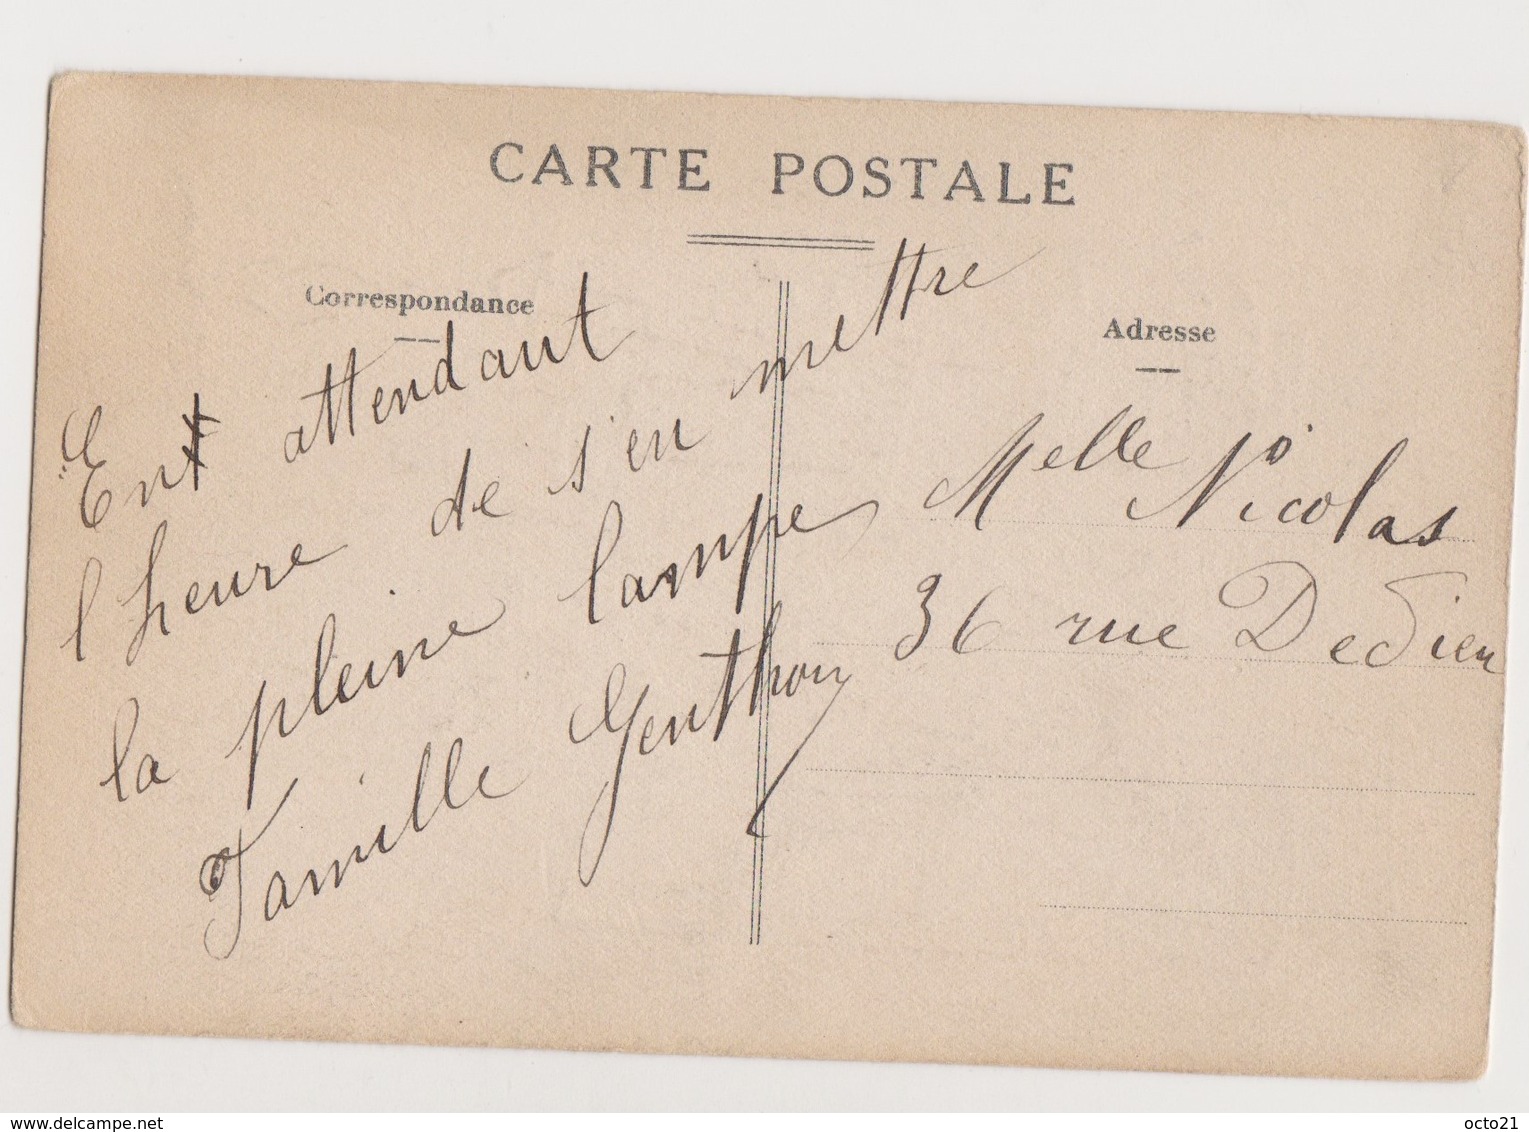 CARTE POSTALE
Correspondance
En attendant
l'heure de s'en mettre
la pleine lampe
Famille Genthon
Adresse
Melle Nicolas
36 rue Dedieu
delcampe.net
octo21